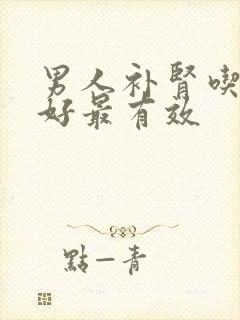 男人补肾喫
好最有效
點一青